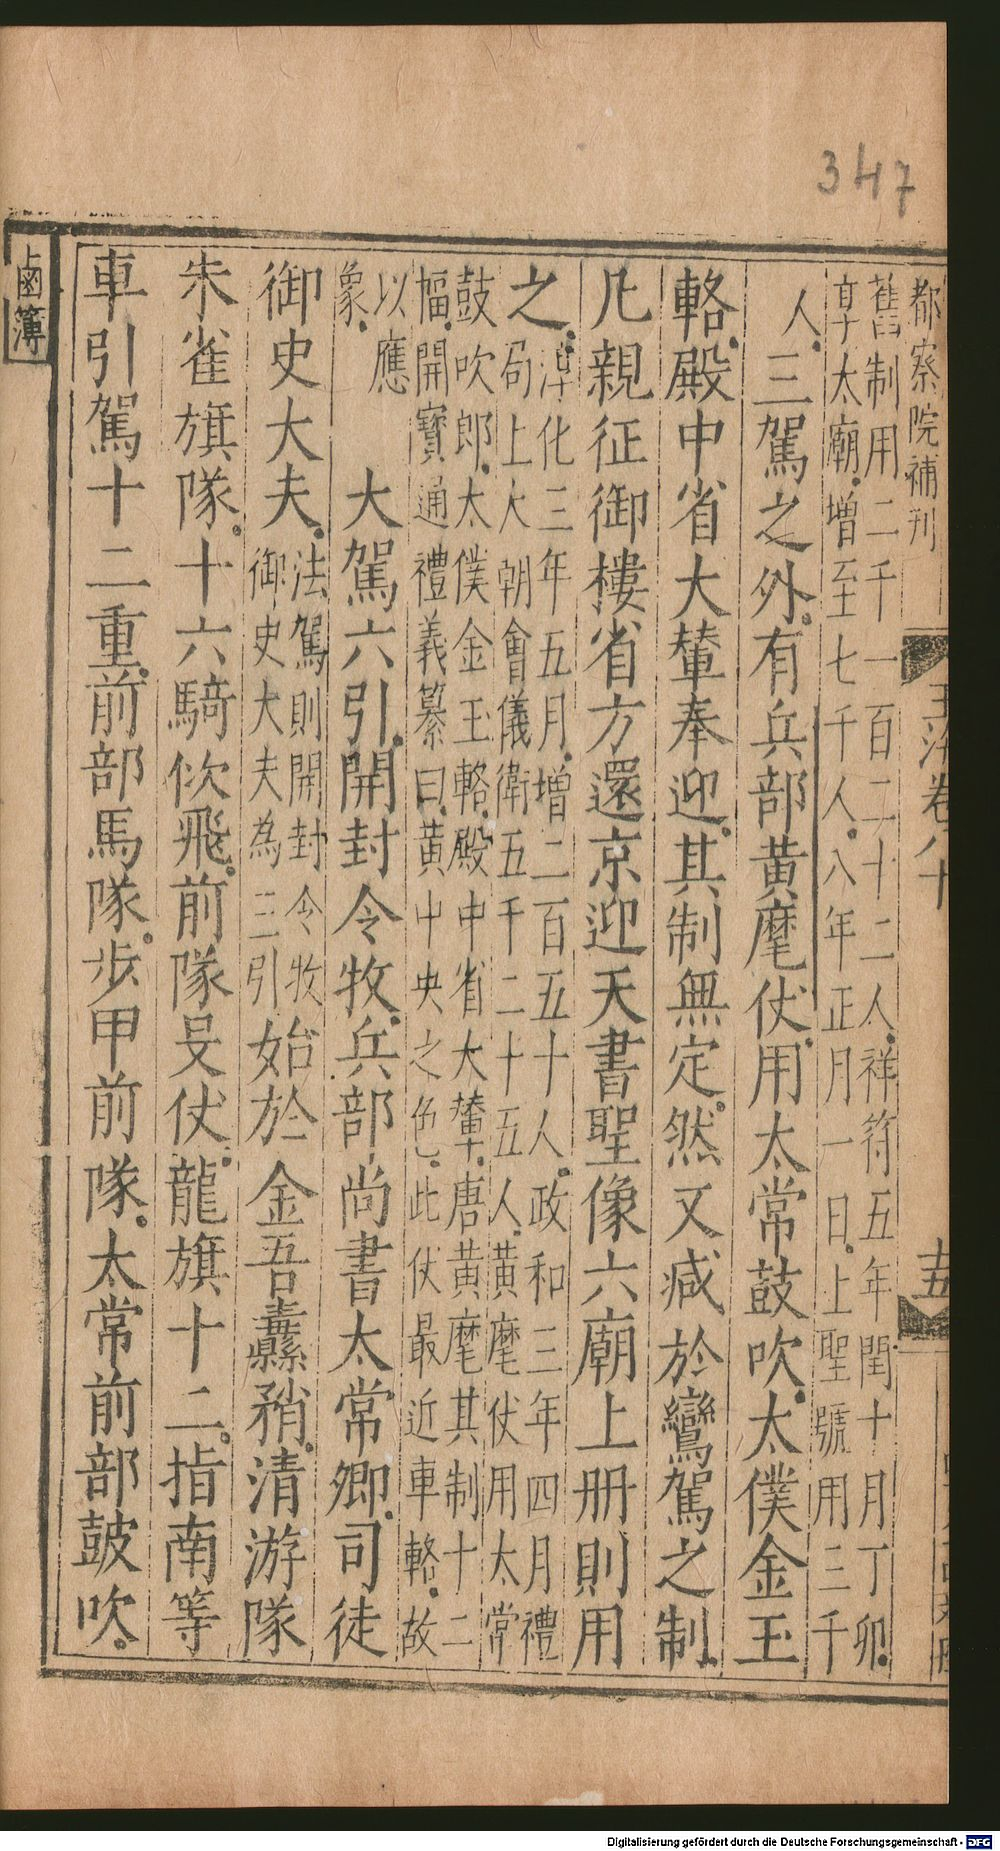 347
都察院補刊
玉海卷八十
十五
舊制用二千一百二十二人祥符五年閏十月丁卯
享太廟增至七千人八年正月一日上聖號用三千
人三駕之外有兵部黄麾仗用太常鼓吹太僕金玉
輅殿中省大輦奉迎其制無定然又減於鸞駕之制
凡親征御樓省方還京迎天書聖像六廟上册則用
之淳化三年五月增二百五十人政和三年四月禮
局上大朝會儀衛五千二十五人黄麾仗用太常
鼓吹郎太僕金玉輅殿中省大輦唐黄麾其制十二
幅開寶通禮義纂曰黄中央之色此仗最近車輅故
以應
象 大駕六引開封令牧兵部尚書太常卿司徒
御史大夫法駕則開封令牧
御史大夫為三引始於金吾纛矟清游隊
朱雀旗隊十六騎佽飛前隊殳仗龍旗十二指南等
車引駕十二重前部馬隊步甲前隊太常前部鼓吹
鹵簿
Digitalisierung gefördert durch die Deutsche Forschungsgemeinschaft - DFG